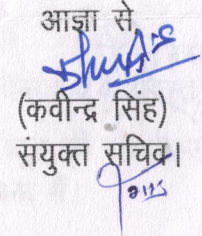 आज्ञा से,
(कवीन्द्र सिंह)
संयुक्त सचिव।